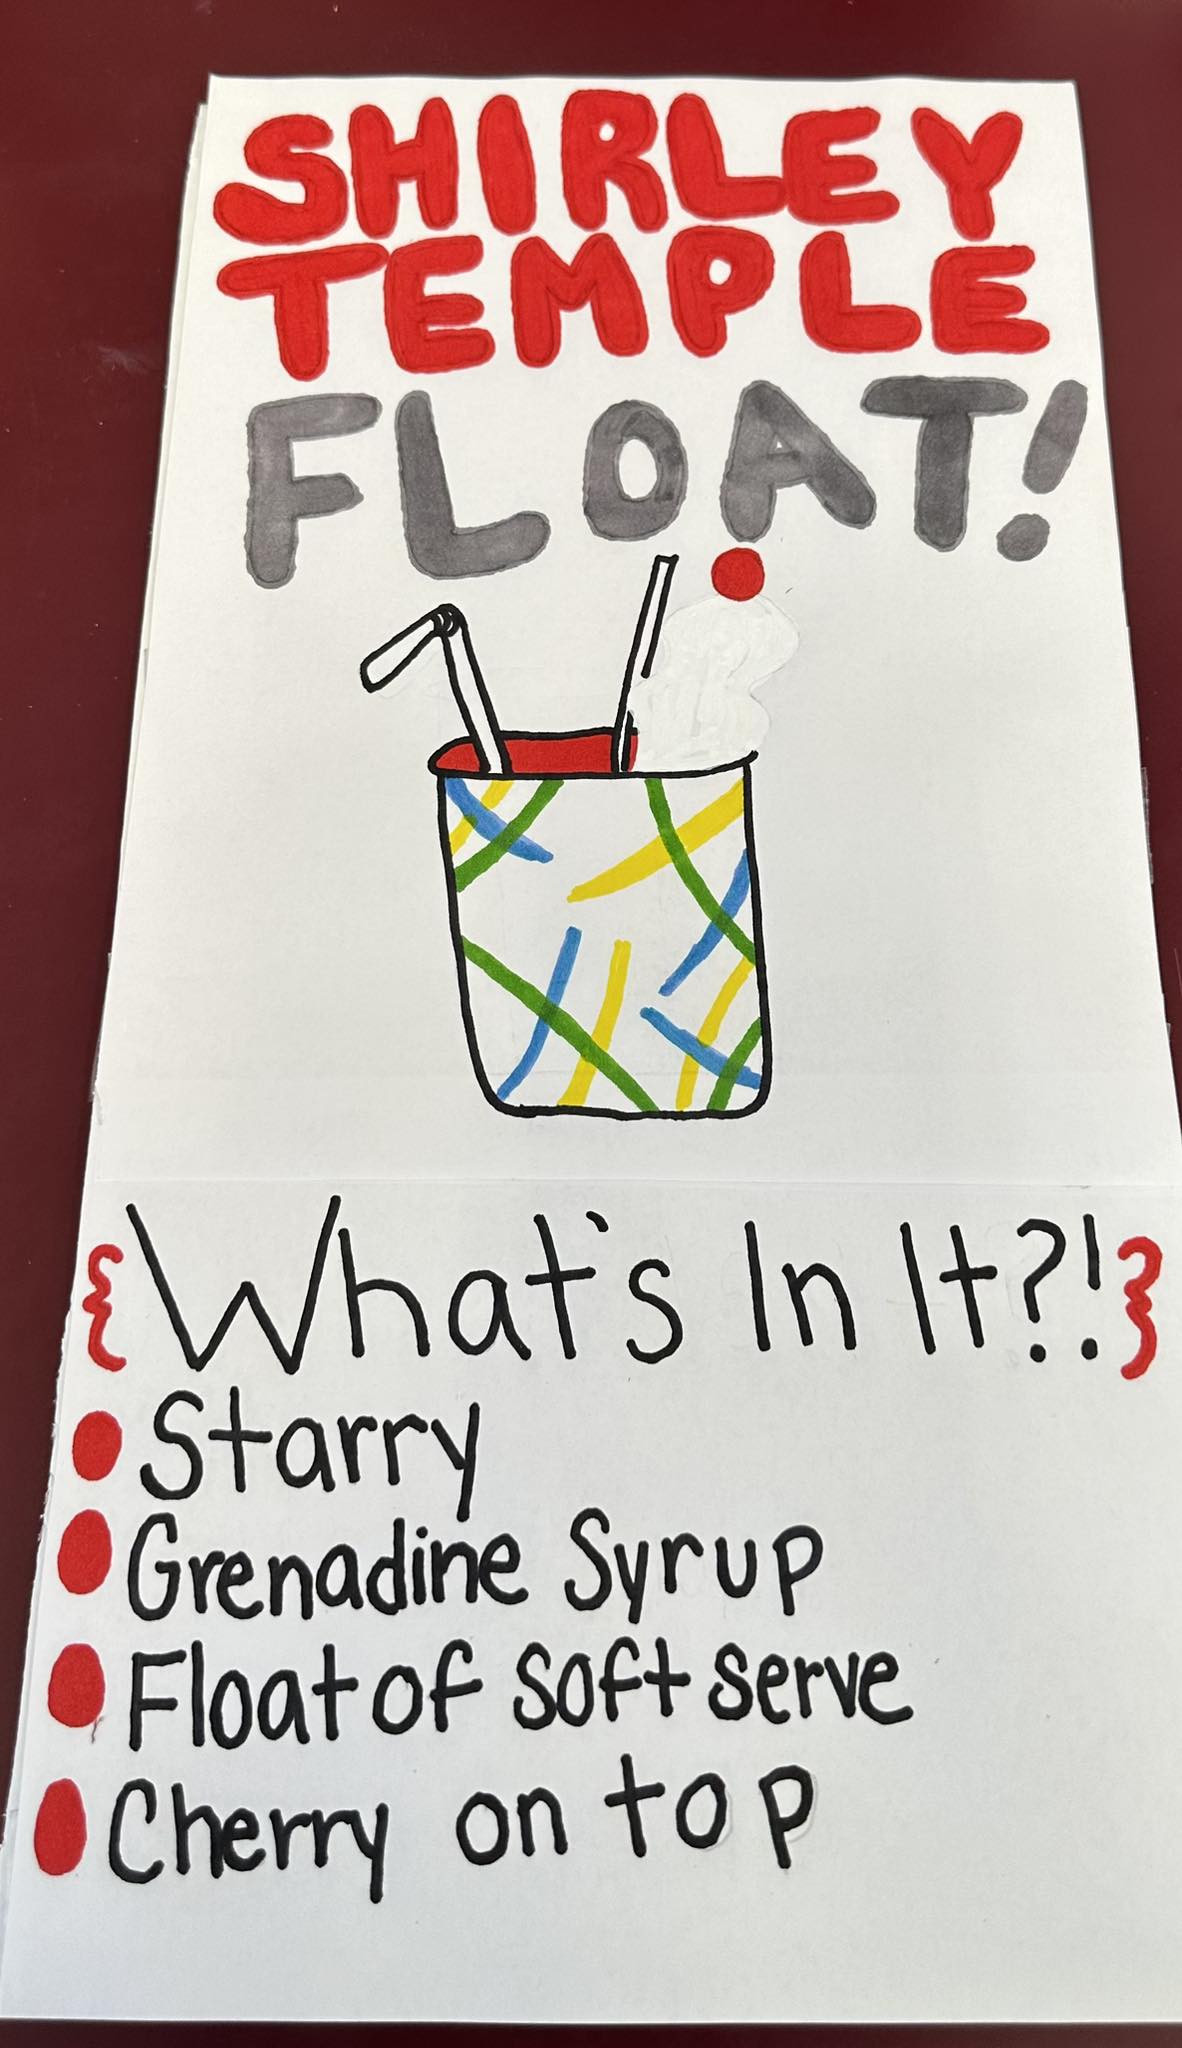 SHIRLEY
TEMPLE
FLOAT!
{What's In It?!}
Starry
Grenadine Syrup
Float of soft serve
Cherry on top